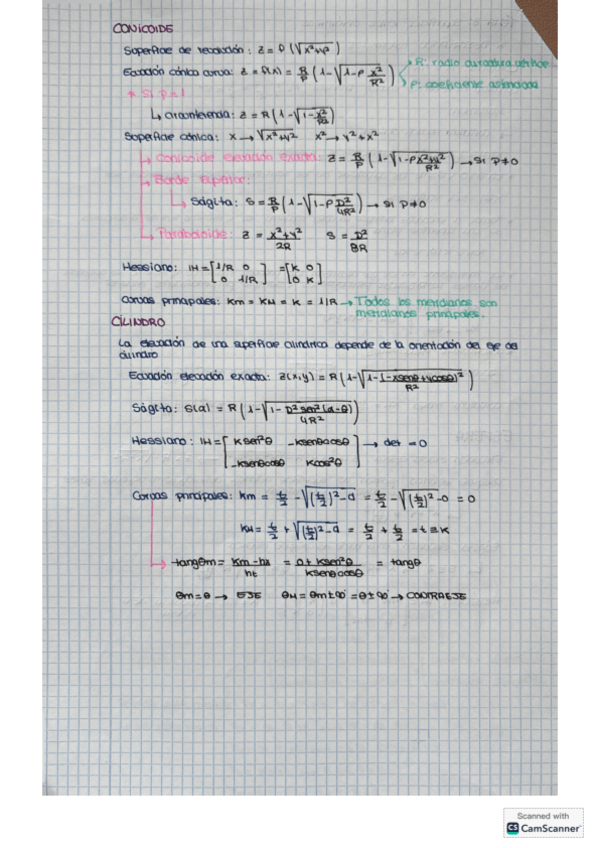 CONICOIDE
Superficie de revolución: z = f(√x²+y²)
Ecuación cónica curva: z = f(x) = R/p (1-√1-p x²/R²) R: radio curvatura
p: coeficiente asfericidad
* Si p=1
↳ circunferencia: z = R(1-√1-x²/R²)
Superficie cónica: x → √x²+y² x² → y²+x²
→ Conicoide elevación exacta: z = R/p (1-√1-p x²+y²/R²) → si p≠0
→ Borde superior:
↳ Ságita: s = R/p (1-√1-p D²/4R²) → si p≠0
→ Paraboloide: z = x²+y²/2R s = D²/8R
Hessiano: IH = [1/R 0 = [K 0
0 1/R] 0 K]
Curvas principales: Km = KM = K = 1/R → Todos los meridianos son
meridianos principales.
CILINDRO
La elevación de una superficie cilíndrica depende de la orientación del eje del
cilindro
Ecuación elevación exacta: z(x,y) = R(1-√1-(-xsenθ+ycosθ)²/R²)
Ságita: s(α) = R(1-√1-D² sen²(α-θ)/4R²)
Hessiano: IH = [Ksen²θ -Ksenθcosθ → det = 0
-Ksenθcosθ Kcos²θ]
Curvas principales: Km = t/2 - √(t/2)²-d = t/2 - √(t/2)²-0 = 0
KM = t/2 + √(t/2)²-d = t/2 + t/2 = t = K
↳ tangθm = Km-hx/ht = 0+Ksen²θ/Ksenθcosθ = tangθ
θm = θ → EJE θM = θm±90° = θ±90° → CONTRAEJE
Scanned with
CS CamScanner